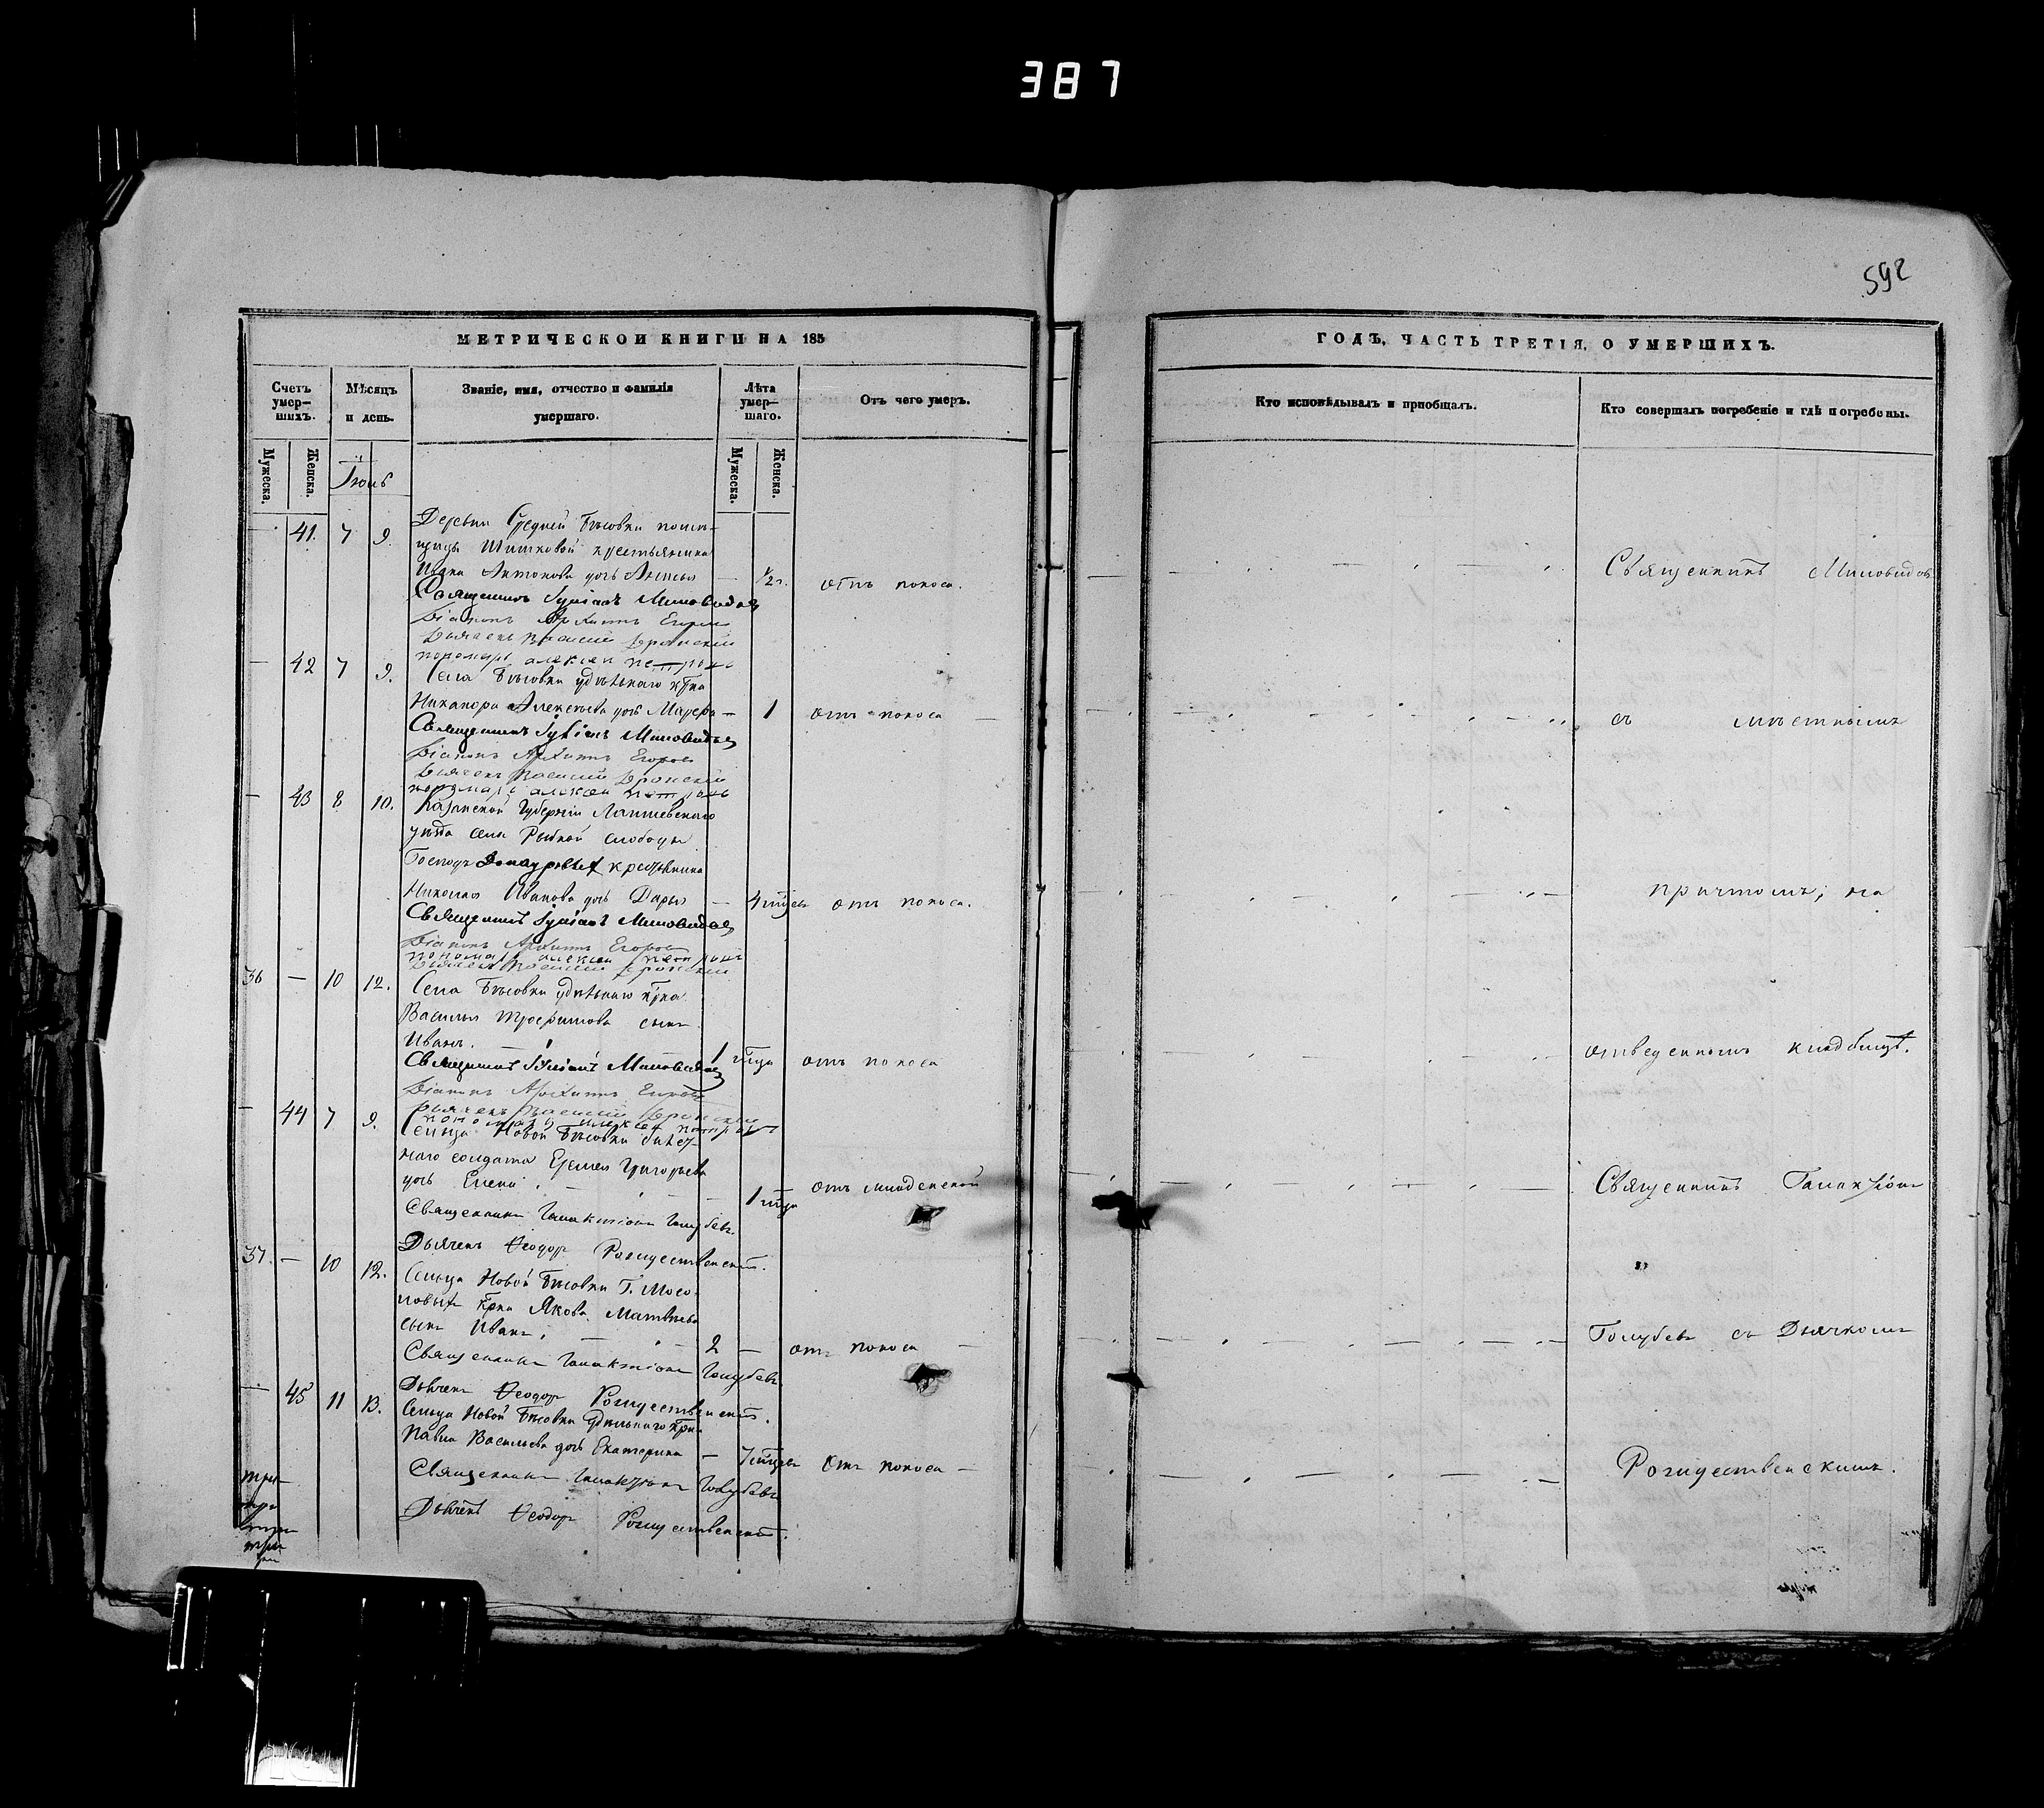 387
592
МЕТРИЧЕСКОЙ КНИГИ НА 185
Счетъ умер-шихъ.
Мѣсяцъ и день.
Званіе, имя, отчество и фамилія умершаго.
Лѣта умер-шаго.
Отъ чего умеръ.
Мужеска.
Женска.
Мужеска.
Женска.
Іюнь
41. 7 9. Деревни Средней Бѣсовки помѣ-
щицы Шишковой крестьянина
Ивана Антонова дочь — 1/2 г. отъ поноса.
Священникъ Миловидовъ
Діаконъ Архипъ Егоровъ
Дьячекъ Василій
пономарь алексей петровъ
— 42 7 9. Села Бѣсовки удѣльнаго крна
Никанора Алексѣева дочь — 1 отъ поноса —
Священникъ Миловидовъ
Діаконъ Архипъ Егоровъ
Дьячекъ Василій
пономарь алексей петровъ
— 43 8 10. Казанской Губерніи Лаишевскаго
уѣзда села Рыбной слободы
Господъ крестьянина
Николая Иванова дочь Дарья — 4 мѣсяц. отъ поноса.
Священникъ Миловидовъ
Діаконъ Архипъ Егоровъ
пономарь алексей петровъ
Дьячекъ Василій
36 — 10 12. Села Бѣсовки удѣльнаго крна
Василья Трофимова сынъ
Иванъ. — 1 года отъ поноса
Священникъ Миловидовъ
Діаконъ Архипъ Егоровъ
Дьячекъ Василій
пономарь алексей петровъ
— 44 7 9. Сельца Новой Бѣсовки
наго солдата Григорьева
дочь Елена, — — 1 года отъ младенской
Священникъ Галактіонъ Голубевъ.
Дьячекъ Ѳеодоръ Рождественскій.
37. — 10 12. Сельца Новой Бѣсовки Г. Мосо-
ловыхъ крна Якова Матвѣева
сынъ Иванъ, — 2 — отъ поноса —
Священникъ Галактіонъ Голубевъ.
Дьячекъ Ѳеодоръ Рождественскій.
— 45 11 13. Сельца Новой Бѣсовки Удѣльнаго крна
Павла Васильева дочь Екатерина — 7 мѣсяц. Отъ поноса —
Священникъ Галактіонъ Голубевъ
Дьячекъ Ѳеодоръ Рождественскій.
ГОДЪ, ЧАСТЬ ТРЕТІЯ, О УМЕРШИХЪ.
Кто исповѣдывалъ и пріобщалъ.
Кто совершалъ погребеніе и гдѣ погребены.
Священникъ Миловидовъ
съ мѣстнымъ
причтомъ, на
отведенномъ кладбищѣ.
Священникъ Галактіонъ
"
Голубевъ съ Дьячкомъ
Рождественскимъ.